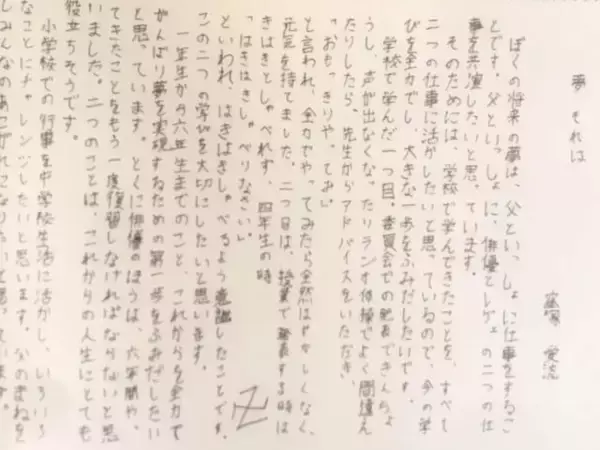 夢 それは
窪塚 愛流
ぼくの将来の夢は、父といっしょに仕事をするこ
とです。父といっしょに、俳優とレゲェの二つの仕
事を共演したいと思っています。
そのためには、学校で学んできたことを、すべて
二つの仕事に活かしたいと思っているので、今の学
びを全力でし、大きな一歩をふみだしたいです。
学校で学んだ一つ目。委員会での発表できんちょ
うし、声が出なくなったりラジオ体操でよく間違え
たりしたら、先生からアドバイスをいただき、
「おもっきりやっておい」
と言われ、全力でやってみたら全然はずかしくなく、
元気を持てました。二つ目は、授業で発表する時は
きはきとしゃべれず、四年生の時
「はきはきしゃべりなさい。」
といわれ、はきはきしゃべるよう意識したことです。
卍
この二つの学びを大切にしたいと思います。
一年生から六年生までのこと、これからを全力で
がんばり夢を実現するための第一歩をふみだしたい
と思っています。とくに俳優のほうは、六年間やっ
てきたことをもう一度復習しなければならないと思
いました。二つのことは、これからの人生にとても
役立ちそうです。
小学校での行事を中学校生活に活かし、いろいろ
なことにチャレンジしたいと思います。父のまねを
しみんなのあこがれになりたいと思っています。